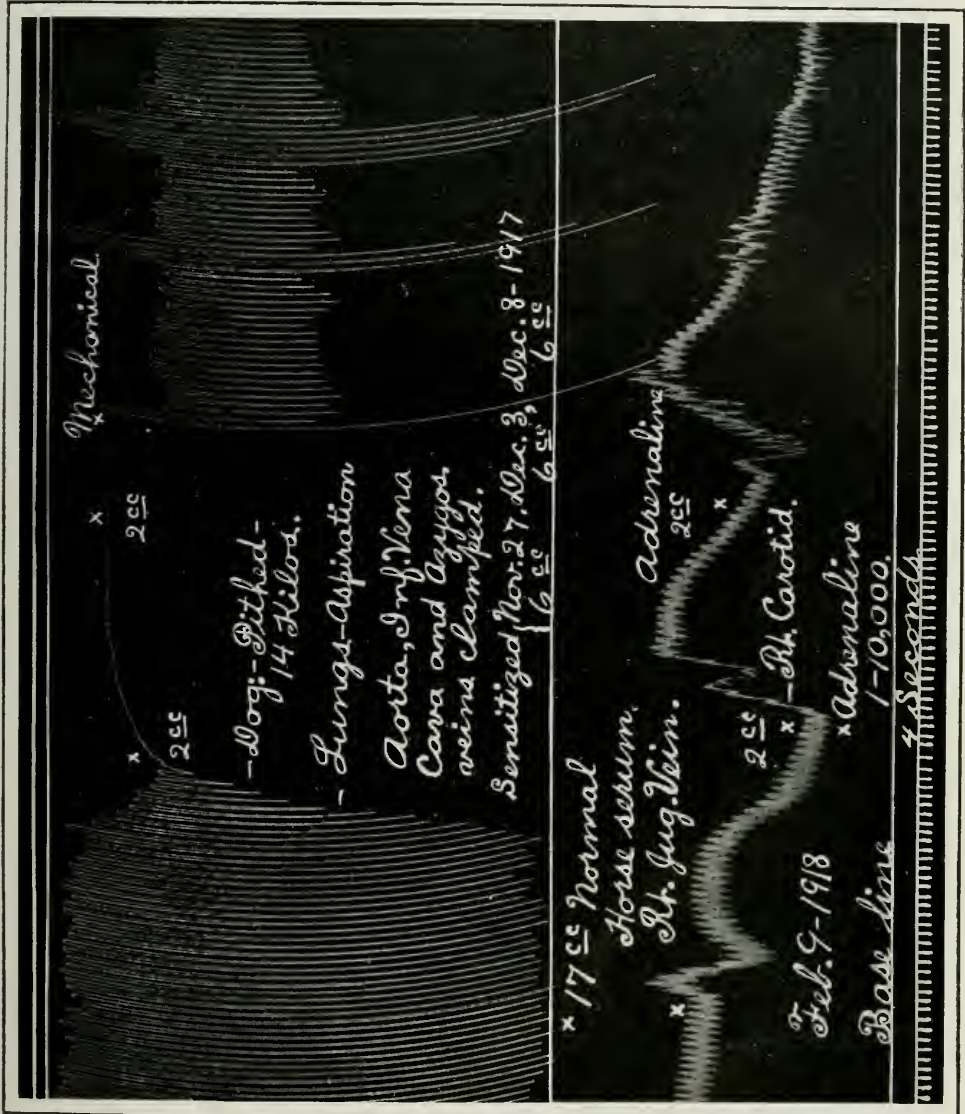 Mechanical
x
x
x
2cc
2cc
-Dog:-Pithed-
14 Kilos.
-Lungs-Aspiration
Aorta, Inf. Vena
Cava and Azygos.
veins clamped.
Sensitized { Nov. 27, Dec. 3, Dec. 8-1917
6cc 6cc 6cc
x 17cc Normal
Horse serum.
Rt. Jug. Vein.
Adrenaline
2cc
x
x
2cc
x -Rt. Carotid.
Feb. 9-1918
x Adrenaline
1-10,000.
Base line
4 Seconds